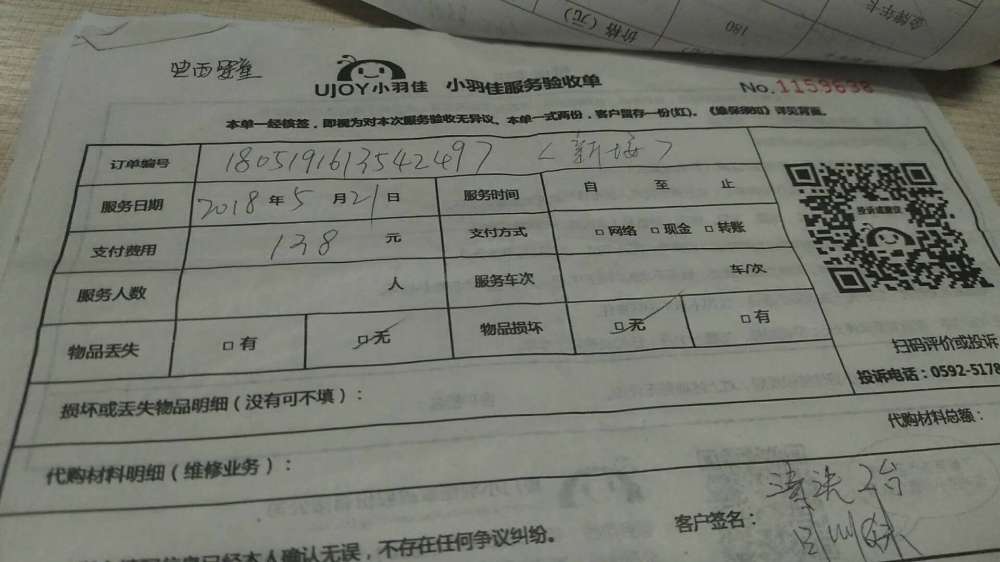 价格(元)
180
金牌年卡
UJOY小羽佳 小羽佳服务验收单
No.1159698
本单一经核签，即视为对本次服务验收无异议、本单一式两份，客户留存一份(红)。《维保须知》详见背面。
订单编号 1805191613542497
服务日期 2018年5月21日 服务时间 自 至 止
投诉或建议
支付费用 138 元 支付方式 □网络 □现金 □转账
服务人数 人 服务车次 车/次
物品丢失 □有 □无 物品损坏 □无 □有
扫码评价或投诉
投诉电话：0592-5178
损坏或丢失物品明细（没有可不填）：
代购材料总额：
代购材料明细（维修业务）：
清洗2台
客户签名：
已经本人确认无误，不存在任何争议纠纷。